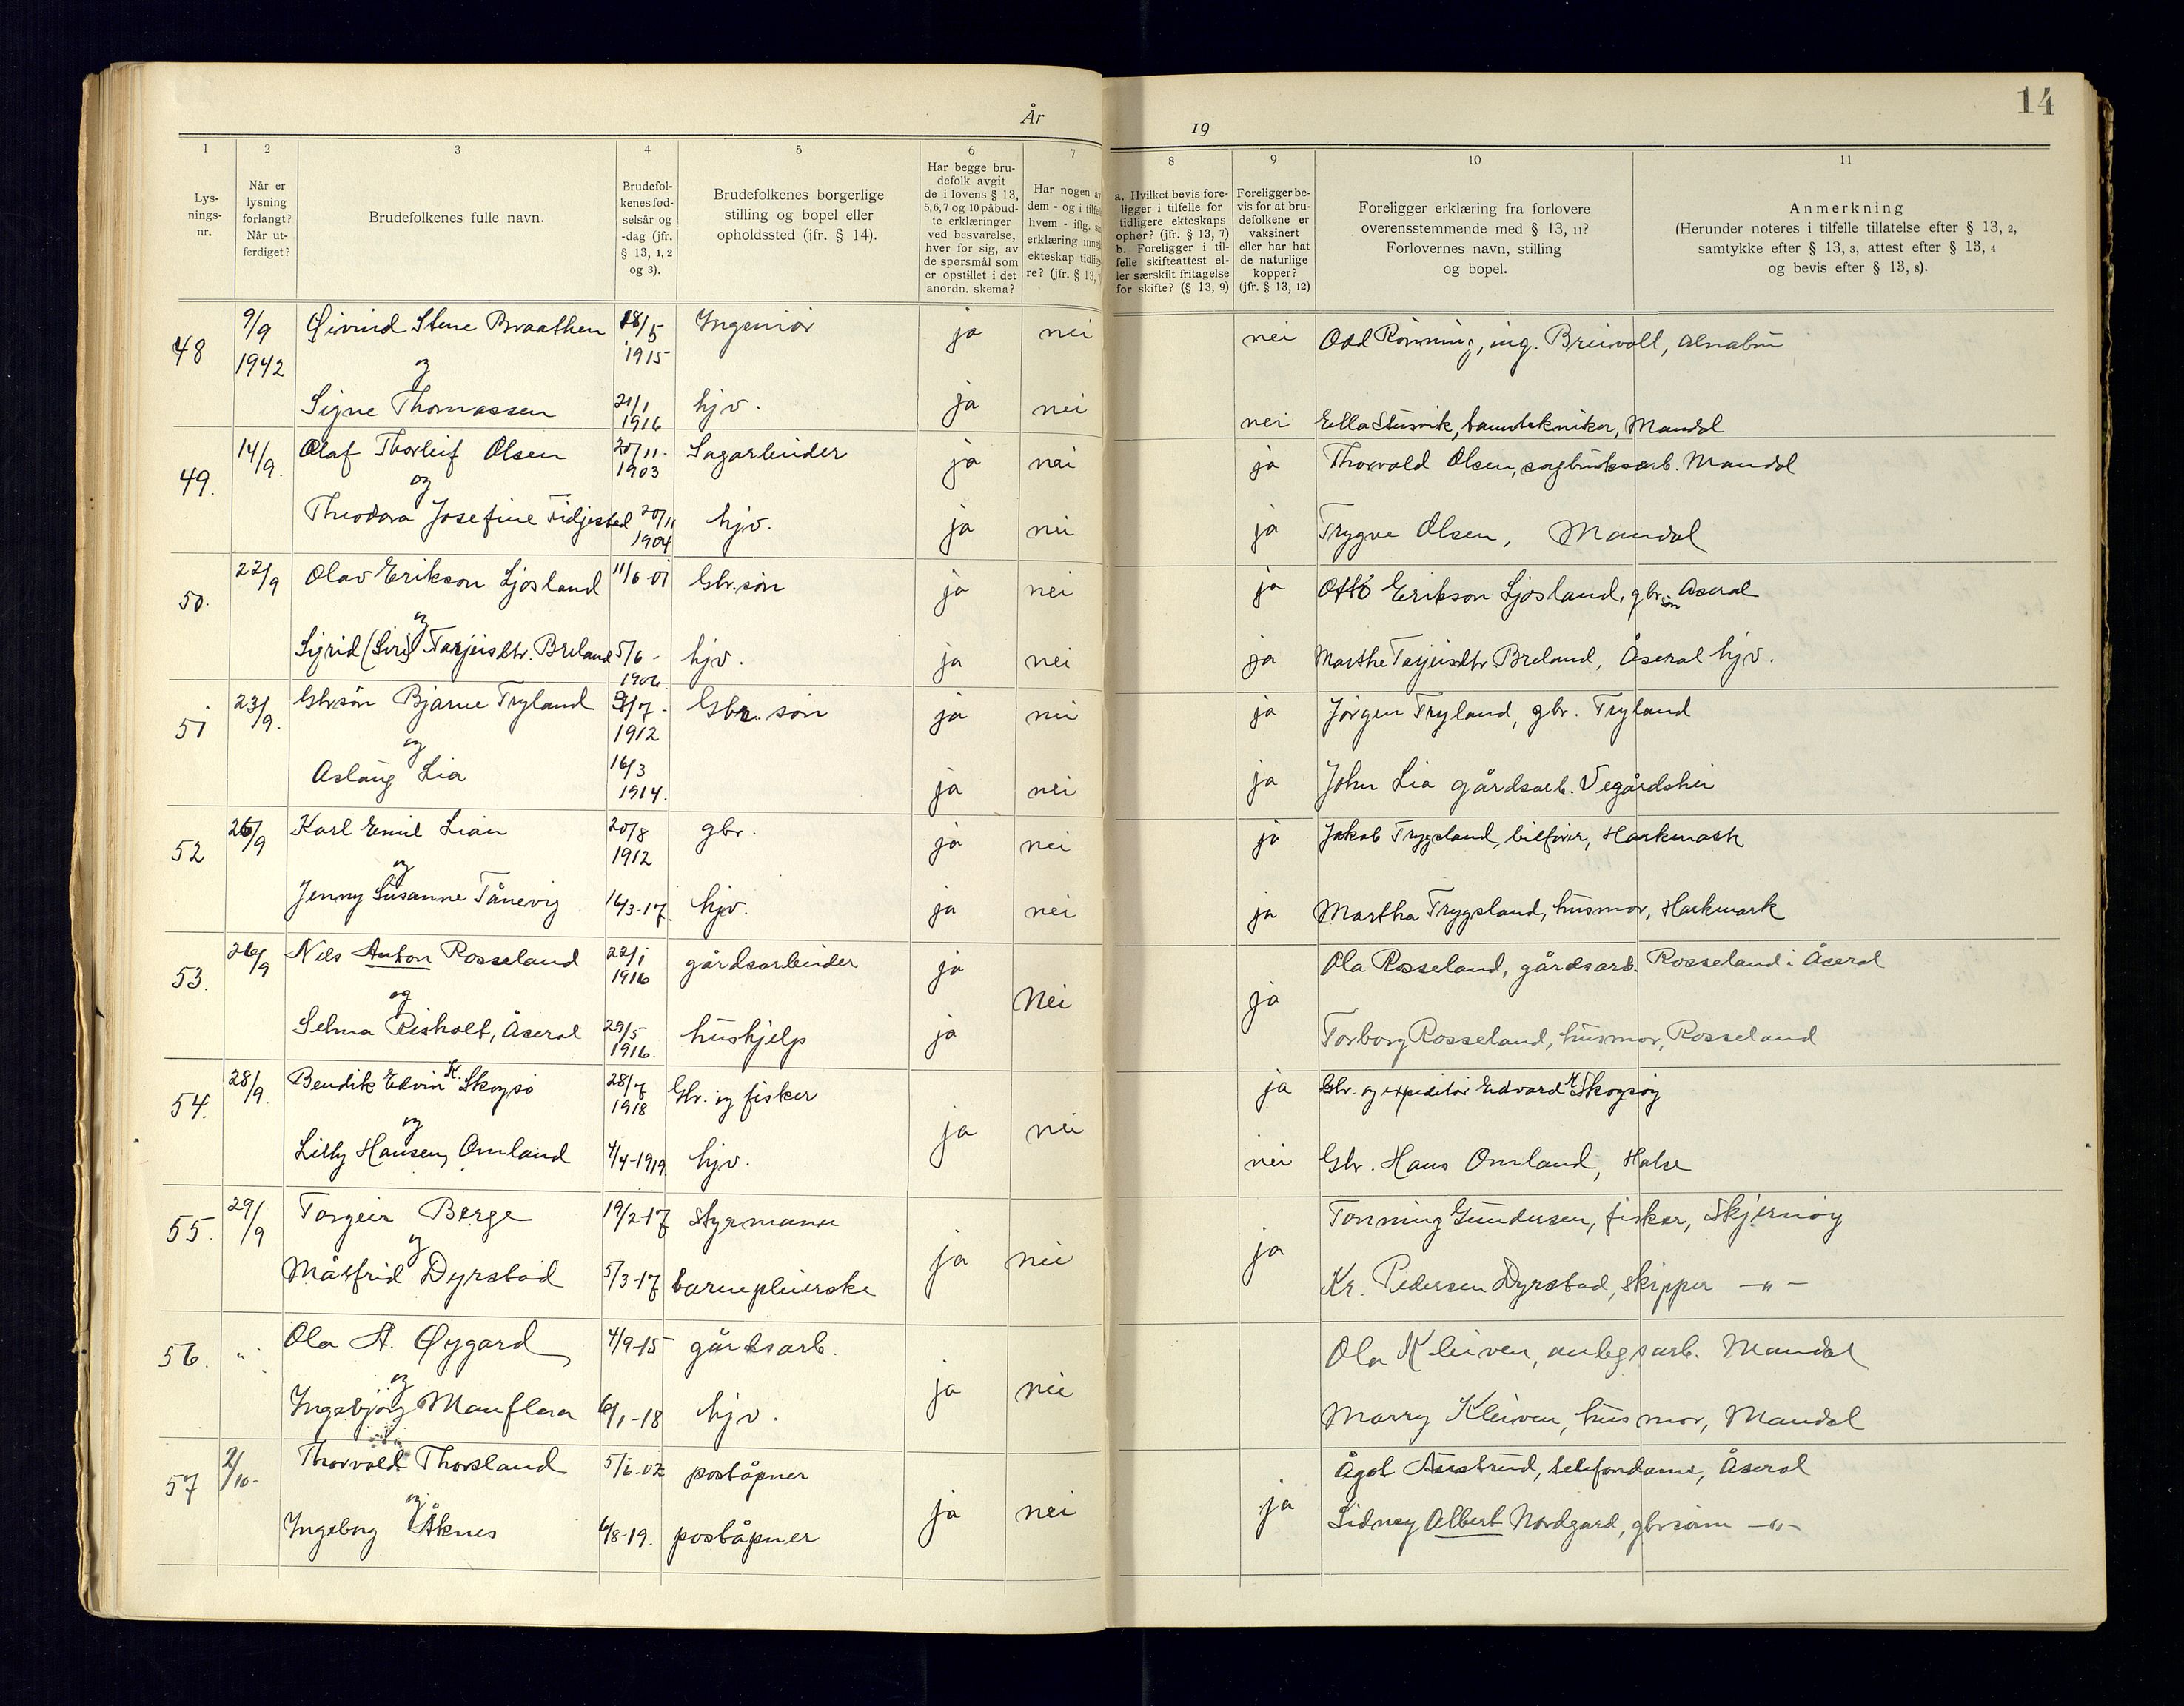 År
19
14
1
2
3
4
5
6
7
8
9
10
11
Lys-
nings-
nr.
Når er
lysning
forlangt?
Når ut-
ferdiget?
Brudefolkenes fulle navn.
Brudefol-
kenes fød-
selsår og
-dag (jfr.
§ 13, 1, 2
og 3).
Brudefolkenes borgerlige
stilling og bopel eller
opholdssted (jfr. § 14).
Har begge bru-
defolk avgit
de i lovens § 13,
5,6,7 og 10 påbud-
te erklæringer
ved besvarelse,
hver for sig, av
de spørsmål som
er opstillet i det
anordn. skema?
Har nogen av
dem - og i tilfelle
hvem - iflg.
erklæring inngå
ekteskap tidlige
re? (jfr. § 13,
a. Hvilket bevis fore-
ligger i tilfelle for
tidligere ekteskaps
ophør? (jfr. § 13, 7)
b. Foreligger i til-
felle skifteattest el-
ler særskilt fritagelse
for skifte? (§ 13, 9)
Foreligger be-
vis for at bru-
defolkene er
vaksinert
eller har hat
de naturlige
kopper?
(jfr. § 13, 12)
Foreligger erklæring fra forlovere
overensstemmende med § 13, 11?
Forlovernes navn, stilling
og bopel.
Anmerkning
(Herunder noteres i tilfelle tillatelse efter § 13, 2,
samtykke efter § 13, 3, attest efter § 13, 4
og bevis efter § 13, 8).
48 9/9 1942 Øivind Stene Braathen 18/5 1915 Ingeniør ja nei nei Odd Rönning, ing. Breivoll, Alnabru
og
Signe Thomassen 21/1 1916 hjv. ja nei nei Ella Stusvik, tanntekniker, Mandal
49. 14/9. Olaf Thorleif Olsen 20/11. 1903 Sagarbeider ja nei ja Thorvald Olsen, sagbruksarb. Mandal
og
Theodora Josefine Fidjestad 20/11 1904 hjv. ja nei ja Trygve Olsen, Mandal
50. 22/9 Olav Erikson Ljosland 11/6 01 Gbr.søn ja nei ja Otto Erikson Ljosland, gbr.søn Åseral
og
Sigrid (Siri) Tarjeisdtr. Breland 5/6 - 1906 hjv. ja nei ja Marthe Tarjeisdtr Breland, Åseral hjv.
51 23/9. Gbrsøn Bjarne Tryland 3/7 - 1912 Gbr. søn ja nei ja Jørgen Tryland, gbr. Tryland
og
Aslaug Lia 16/3 1914. ja nei ja John Lia gårdsarb. Vegårdshei
52 26/9 Karl Emil Lian 20/8 1912 gbr. ja nei ja Jakob Trygsland, bilfører, Harkmark
og
Jenny Susanne Tånevig 16/3-17. hjv. ja nei ja Martha Trygsland, husmor, Harkmark
53. 26/9 Nils Anton Rosseland 22/1 1916 gårdsarbeider ja Nei ja Ola Rosseland, gårdsarb. Rosseland i Åseral
og
Selma Risholt, Åseral 29/5 1916. hushjelp ja Torborg Rosseland, husmor, Rosseland
54. 28/9. Bendik Edvin K. Skogsø 28/7 1918 Gbr. og fisker ja nei ja Gbr. og expeditør Edvard E Skogsøy
og
Lilly Hansen, Omland 4/4-1919. hjv. nei Gbr. Hans Omland, Halse
55. 29/9 Torgeir Berge 19/2-17 Styrmann ja nei ja Tonning Gundersen, fisker, Skjernøy
og
Målfrid Dyrstad 5/3-17 barnepleierske Kr. Pedersen Dyrstad, skipper —"—
56. " Ola A. Øygard 4/9-15 gårdsarb. ja nei Ola Kleiven, anlegsarb. Mandal
og
Ingebjörg Manflaa 6/1-18 hjv. Marry Kleiven, husmor, Mandal
57 2/10- Thorvald Thorsland 5/6.02 poståpner ja nei ja Ågot Austrud, telefondame, Åseral
og
Ingeborg Åknes 6/8-19. poståpner Sidney Albert Nordgard, gbrsønn —"—